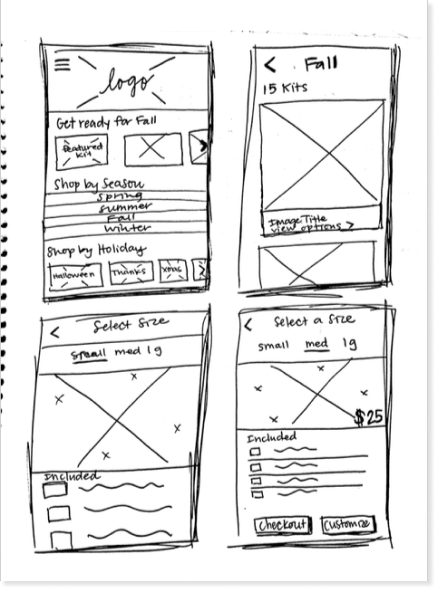 logo
Get ready for Fall
featured
kit
Shop by Season
spring
summer
Fall
winter
Shop by Holiday
Halloween
Thanks
xmas
Fall
15 Kits
Image Title
view options >
Select Size
small med lg
Included
Select a Size
small med lg
$25
Included
Checkout
Customize